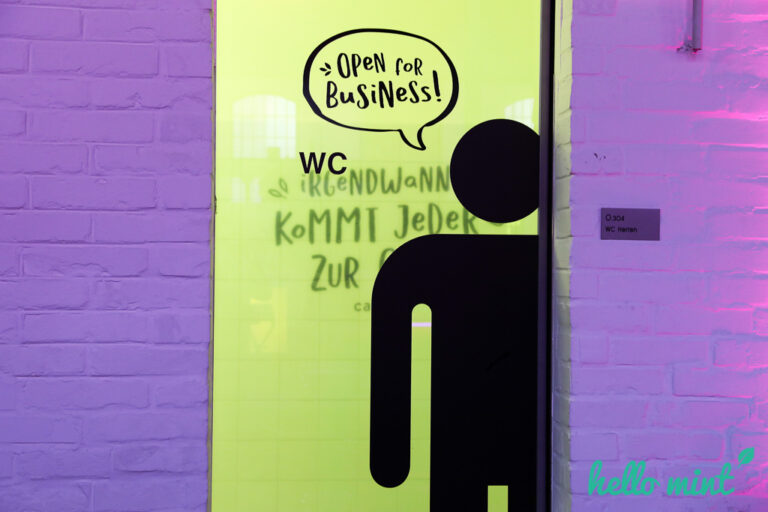 OPEN FOR
BUSINESS!
WC
iRGENDWANN
KOMMT JEDER
ZUR
O.304
WC Herren
hello mint